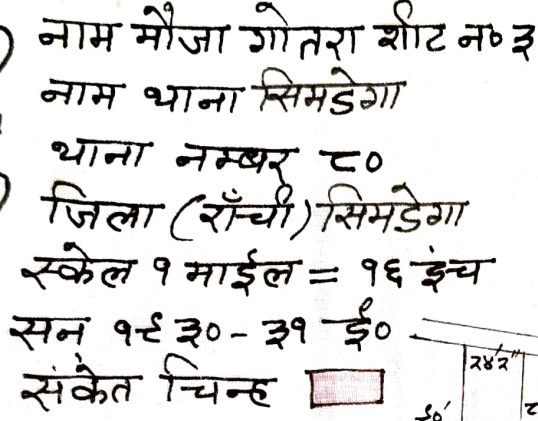 नाम मौजा गोतरा शीट न० ३
नाम थाना सिमडेगा
थाना नम्बर ८०
जिला (राँची) सिमडेगा
स्केल १ माईल = १६ इंच
सन् १९३०-३१ ई०
संकेत चिन्ह
२४'२"